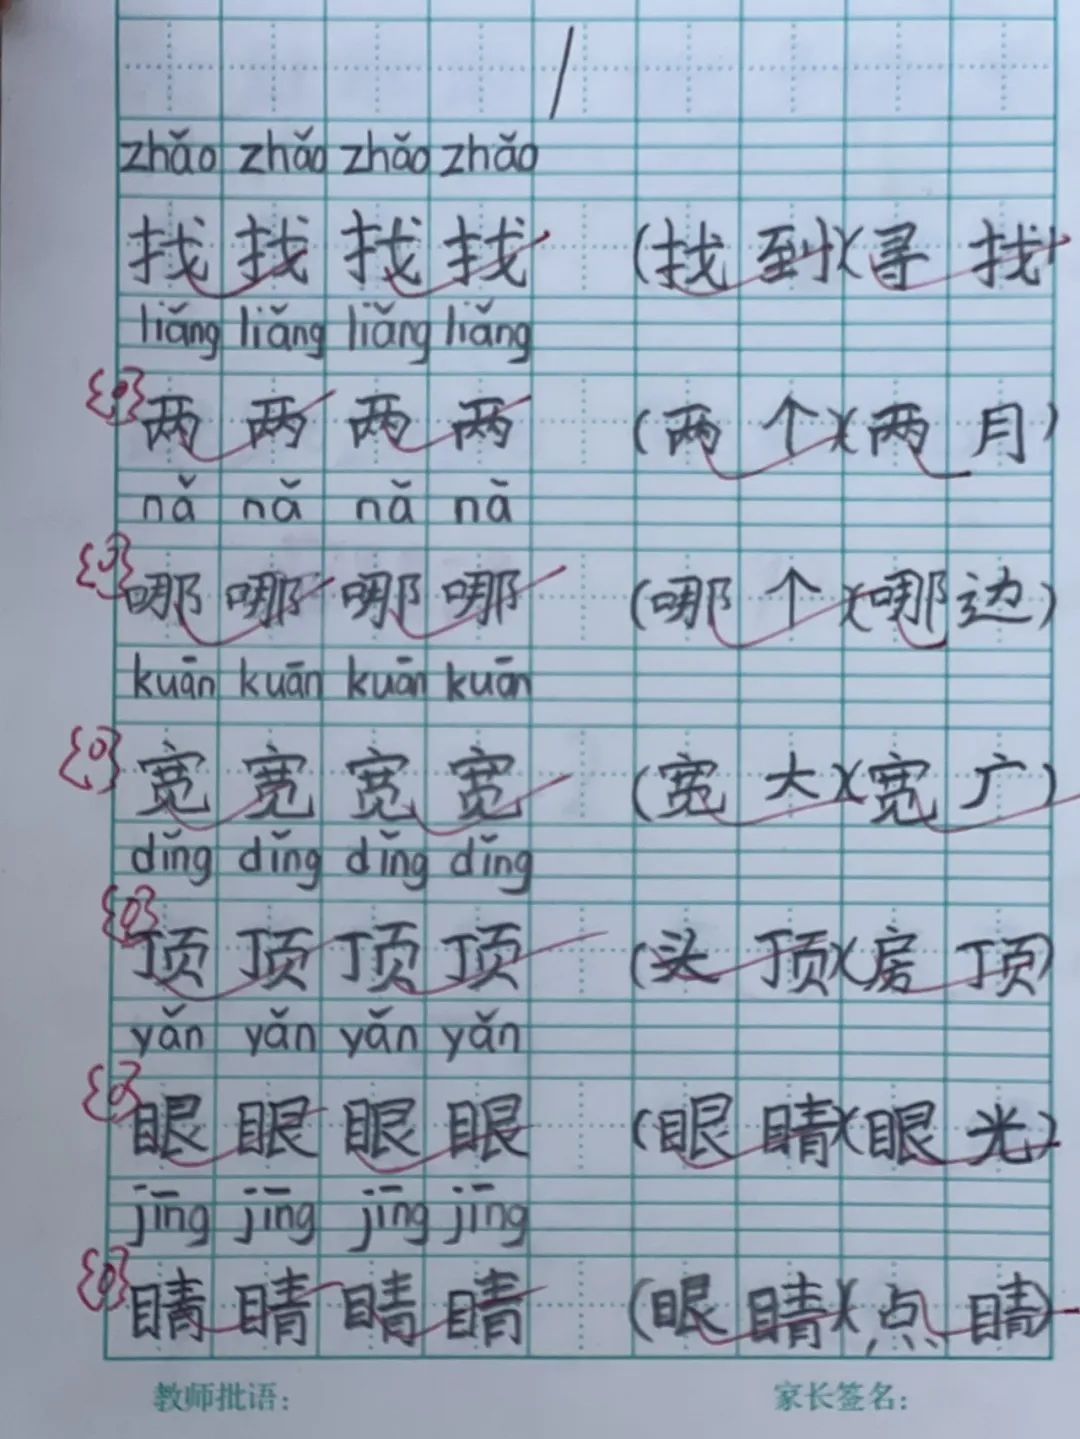 zhǎo zhǎo zhǎo zhǎo
找 找 找 找 (找 到)(寻 找)
liǎng liǎng liǎng liǎng
两 两 两 两 (两 个)(两 月)
nǎ nǎ nǎ nǎ
哪 哪 哪 哪 (哪 个)(哪 边)
kuān kuān kuān kuān
宽 宽 宽 宽 (宽 大)(宽 广)
dǐng dǐng dǐng dǐng
顶 顶 顶 顶 (头 顶)(房 顶)
yǎn yǎn yǎn yǎn
眼 眼 眼 眼 (眼 睛)(眼 光)
jīng jīng jīng jīng
睛 睛 睛 睛 (眼 睛)(点 睛)
教师批语: 家长签名: